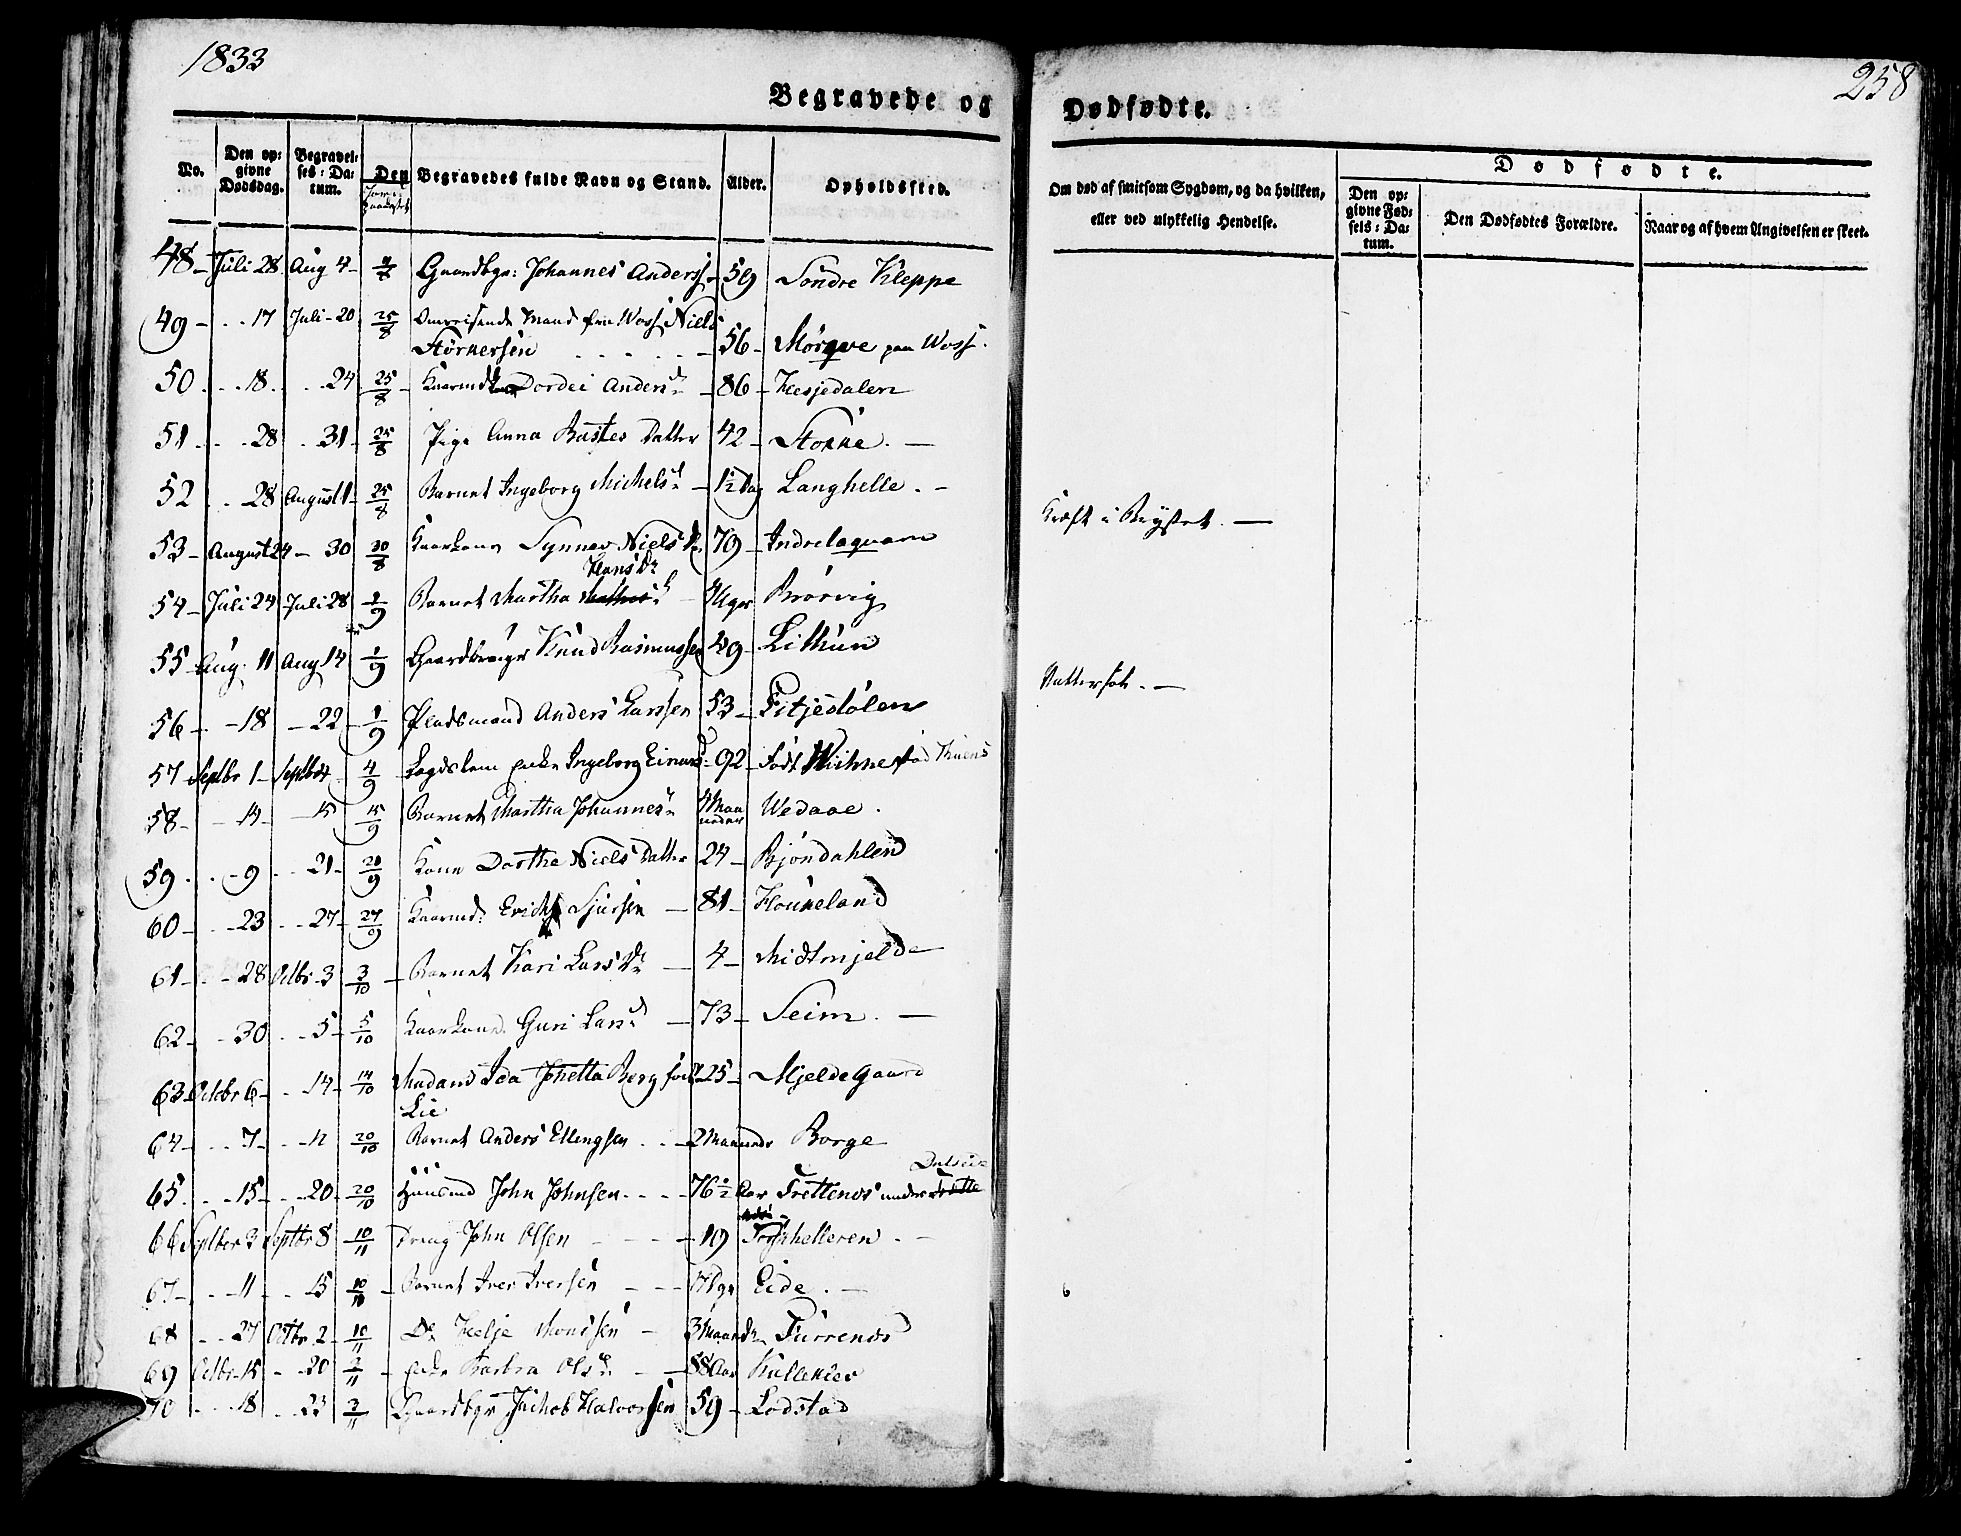 1833
258
Begravede og Dødfødte.
No. Den opgivne Dødsdag. Begravelses-Datum. Den Jordpaakastet Begravedes fulde Navn og Stand. Alder. Opholdssted.
Om død af smitsom Sygdom, og da hvilken, eller ved ulykkelig Hendelse.
Dødfødte.
Den opgivne Fødsels-Datum. Den Dødfødtes Forældre. Naar og af hvem Angivelsen er skeet.
48 Juli 28 Aug 4 Gaardbgr: Johannes Anderss 59 Söndre Kleppe
49 17 Juli 20 25/8 Omreisende Mand fra Woss Niels
Störkersen 56 Mörqve paa Woss.
50 18 24 25/8 Kaarmd Dordei Andersd 86 Hesjedalen
51 28 31 25/8 Pige Anna Datter 42 Stokke.
52 28 August 1 25/8 Barnet Ingeborg Michelsd 1½ Dag Langhelle.
53 August 24 30 30/8 Kaarkone Synnev Niels Dr 79 Indre Kræft i Brystet.
Hans Dr
54 Juli 24 Juli 28 1/9 Barnet Martha Brörvig
55 Aug. 11 Aug 14 1/9 Gaardbruger Knud Rasmussen 49 Lithun
56 18 22 1/9 Pladsmand Anders Larssen 53 Fitjestölen Vattersot.
57 Septbr 1 Septbr 4 4/9 Enke Ingeborg Einersd 92 Födt
58 14 15 15/9 Barnet Martha Johannesd 4 Maaneder Wedaae.
59 9 21 20/9 Kone Dorthe Niels Datter 24 Bjöndahlen
60 23 27 27/9 Kaarmd: Erich Sjursen 81 Houkeland
61 28 Octbr 3 3/10 Barnet Kari Lars Dr 4 Midtmjelde
62 30 5 5/10 Kaarkone Guri Larsd 73 Seim.
63 Octbr 6 14 14/10 Madame Ida Jhetta Berg föd 25 Mjeldegaard
Lie
64 7 20/10 Barnet Anders Ellingsen 2 Maaneder Borge
65 15 20 20/10 Huusmd John Johnsen 76½ Aar Trettenes under
66 Septber 3 Septbr 8 10/11 Dreng John Olsen 19
67 11 15 10/11 Barnet Iver Iversen Eide.
68 27 Octbr 2 10/11 Do Helje Monssen 3 Maaneder Furrenes
69 Octbr 15 20 2/11 Enke Barbra Olsd 88 Aar
70 18 23 2/11 Gaardbgr Jachob Halvorsen 59 Lodstad